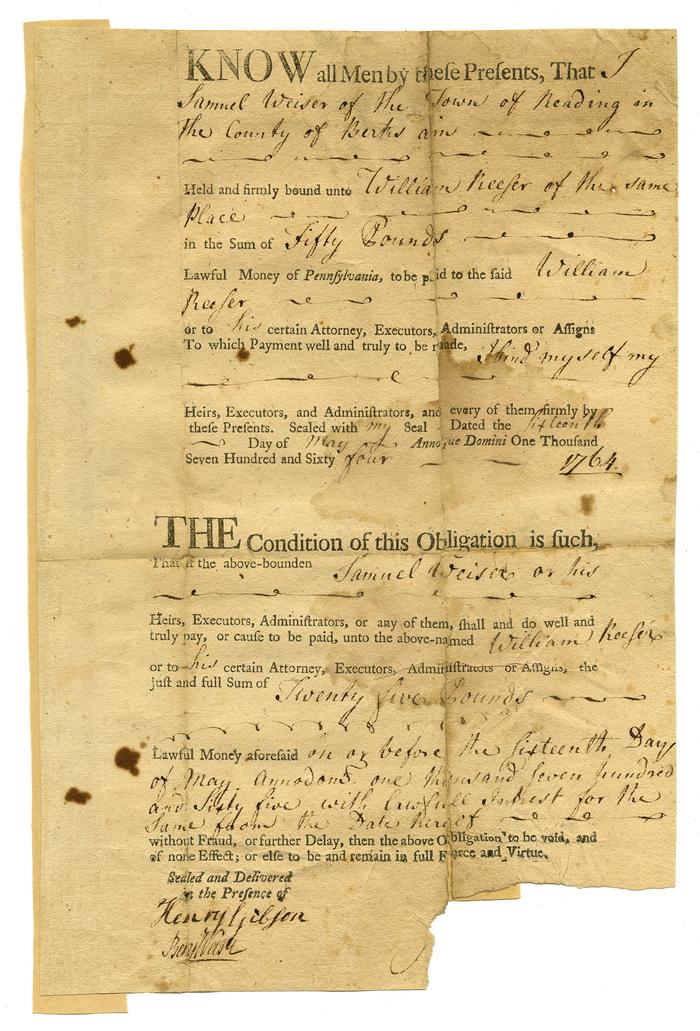 KNOW all Men by theſe Preſents, That I
Samuel Weiser of the Town of Reading in
the County of Berks am
Held and firmly bound unto William Reeser of the same
Place
in the Sum of Fifty Pounds
Lawful Money of Pennſylvania, to be paid to the ſaid William
Reeser
or to his certain Attorney, Executors, Adminiſtrators or Aſſigns
To which Payment well and truly to be made, I bind myself my
Heirs, Executors, and Adminiſtrators, and every of them firmly by
theſe Preſents. Sealed with my Seal Dated the ſixteenth
Day of May Annoque Domini One Thouſand
Seven Hundred and Sixty four 1764.
THE Condition of this Obligation is ſuch,
That if the above-bounden Samuel Weiser or his
Heirs, Executors, Adminiſtrators, or any of them, ſhall and do well and
truly pay, or cauſe to be paid, unto the above-named William Reeser
or to his certain Attorney, Executors, Adminiſtrators or Aſſigns, the
juſt and full Sum of Twenty five Pounds
Lawful Money aforeſaid on or before the ſixteenth Day
of May Annodom one thousand ſeven hundred
and Sixty five with lawfull Intrest for the
Same from the Date hereof
without Fraud, or further Delay, then the above Obligation to be void, and
of none Effect; or elſe to be and remain in full Force and Virtue.
Sealed and Delivered
in the Preſence of
Henry Gibson